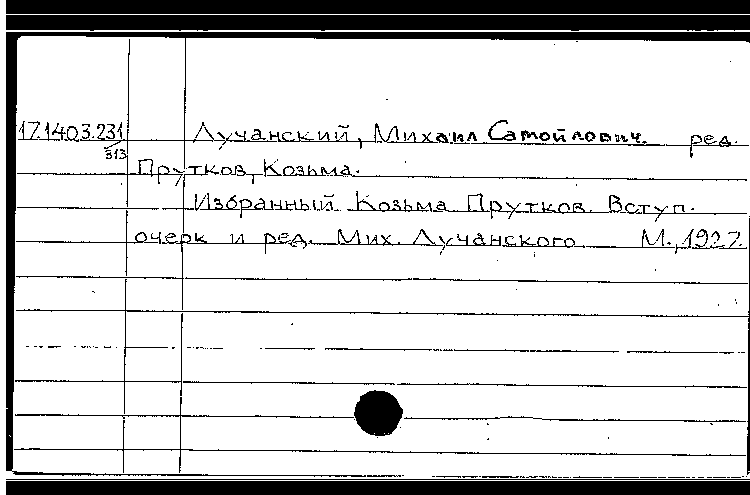 17.1403.231 Лучанский, Михаил Самойлович. ред.
313
Прутков, Козьма.
Избранный Козьма Прутков. Вступ.
очерк и ред. Мих. Лучанского М., 1927.